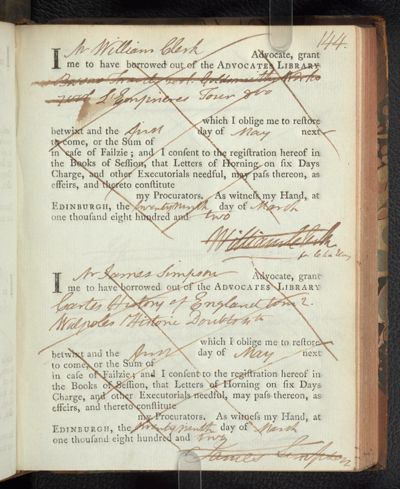 144.
I Mr William Clerk Advocate, grant
me to have borrowed out of the ADVOCATES LIBRARY
L'Emprieres Tour 8vo
which I oblige me to restore
betwixt and the first day of May next
to come, or the Sum of
in case of Failzie; and I consent to the registration hereof in
the Books of Session, that Letters of Horning on six Days
Charge, and other Executorials needful, may pass thereon, as
effeirs, and thereto constitute
my Procurators. As witness my Hand, at
EDINBURGH, the twenty ninth day of March
one thousand eight hundred and two
William Clerk
I Mr James Simpson Advocate, grant
me to have borrowed out of the ADVOCATES LIBRARY
Cartes History of England tom 2.
Walpoles Historic Doubts 4to
which I oblige me to restore
betwixt and the first day of May next
to come, or the Sum of
in case of Failzie; and I consent to the registration hereof in
the Books of Session, that Letters of Horning on six Days
Charge, and other Executorials needful, may pass thereon, as
effeirs, and thereto constitute
my Procurators. As witness my Hand, at
EDINBURGH, the twenty ninth day of March
one thousand eight hundred and two
James Simpson